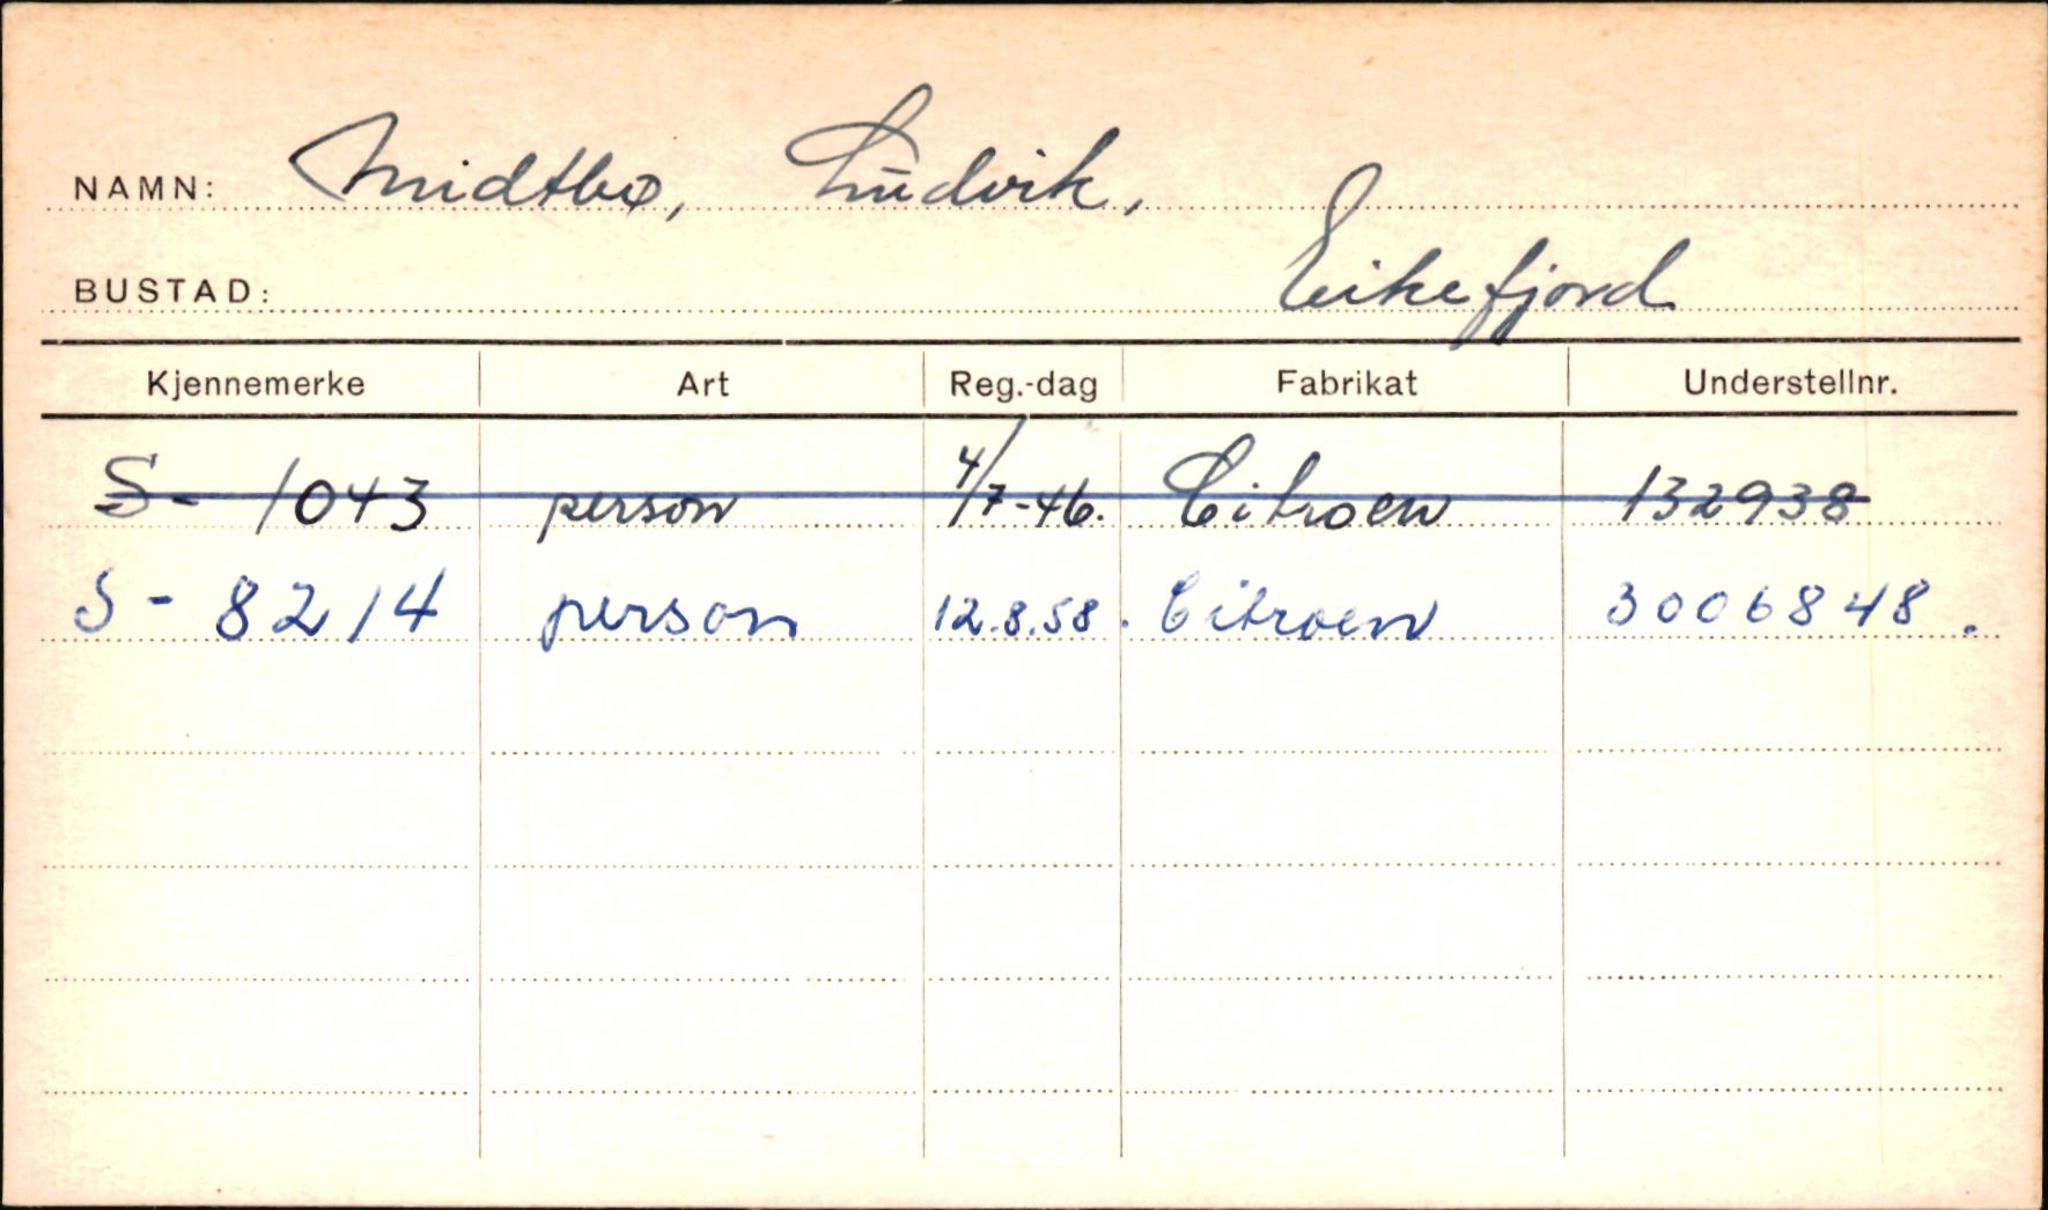 NAMN: Midtbø, Ludvik,
BUSTAD: Eikefjord
Kjennemerke Art Reg.-dag Fabrikat Understellnr.
S- 1043 person 4/7-46. Citroen 132938
S- 8214 person 12.8.58. Citroen 3006848.